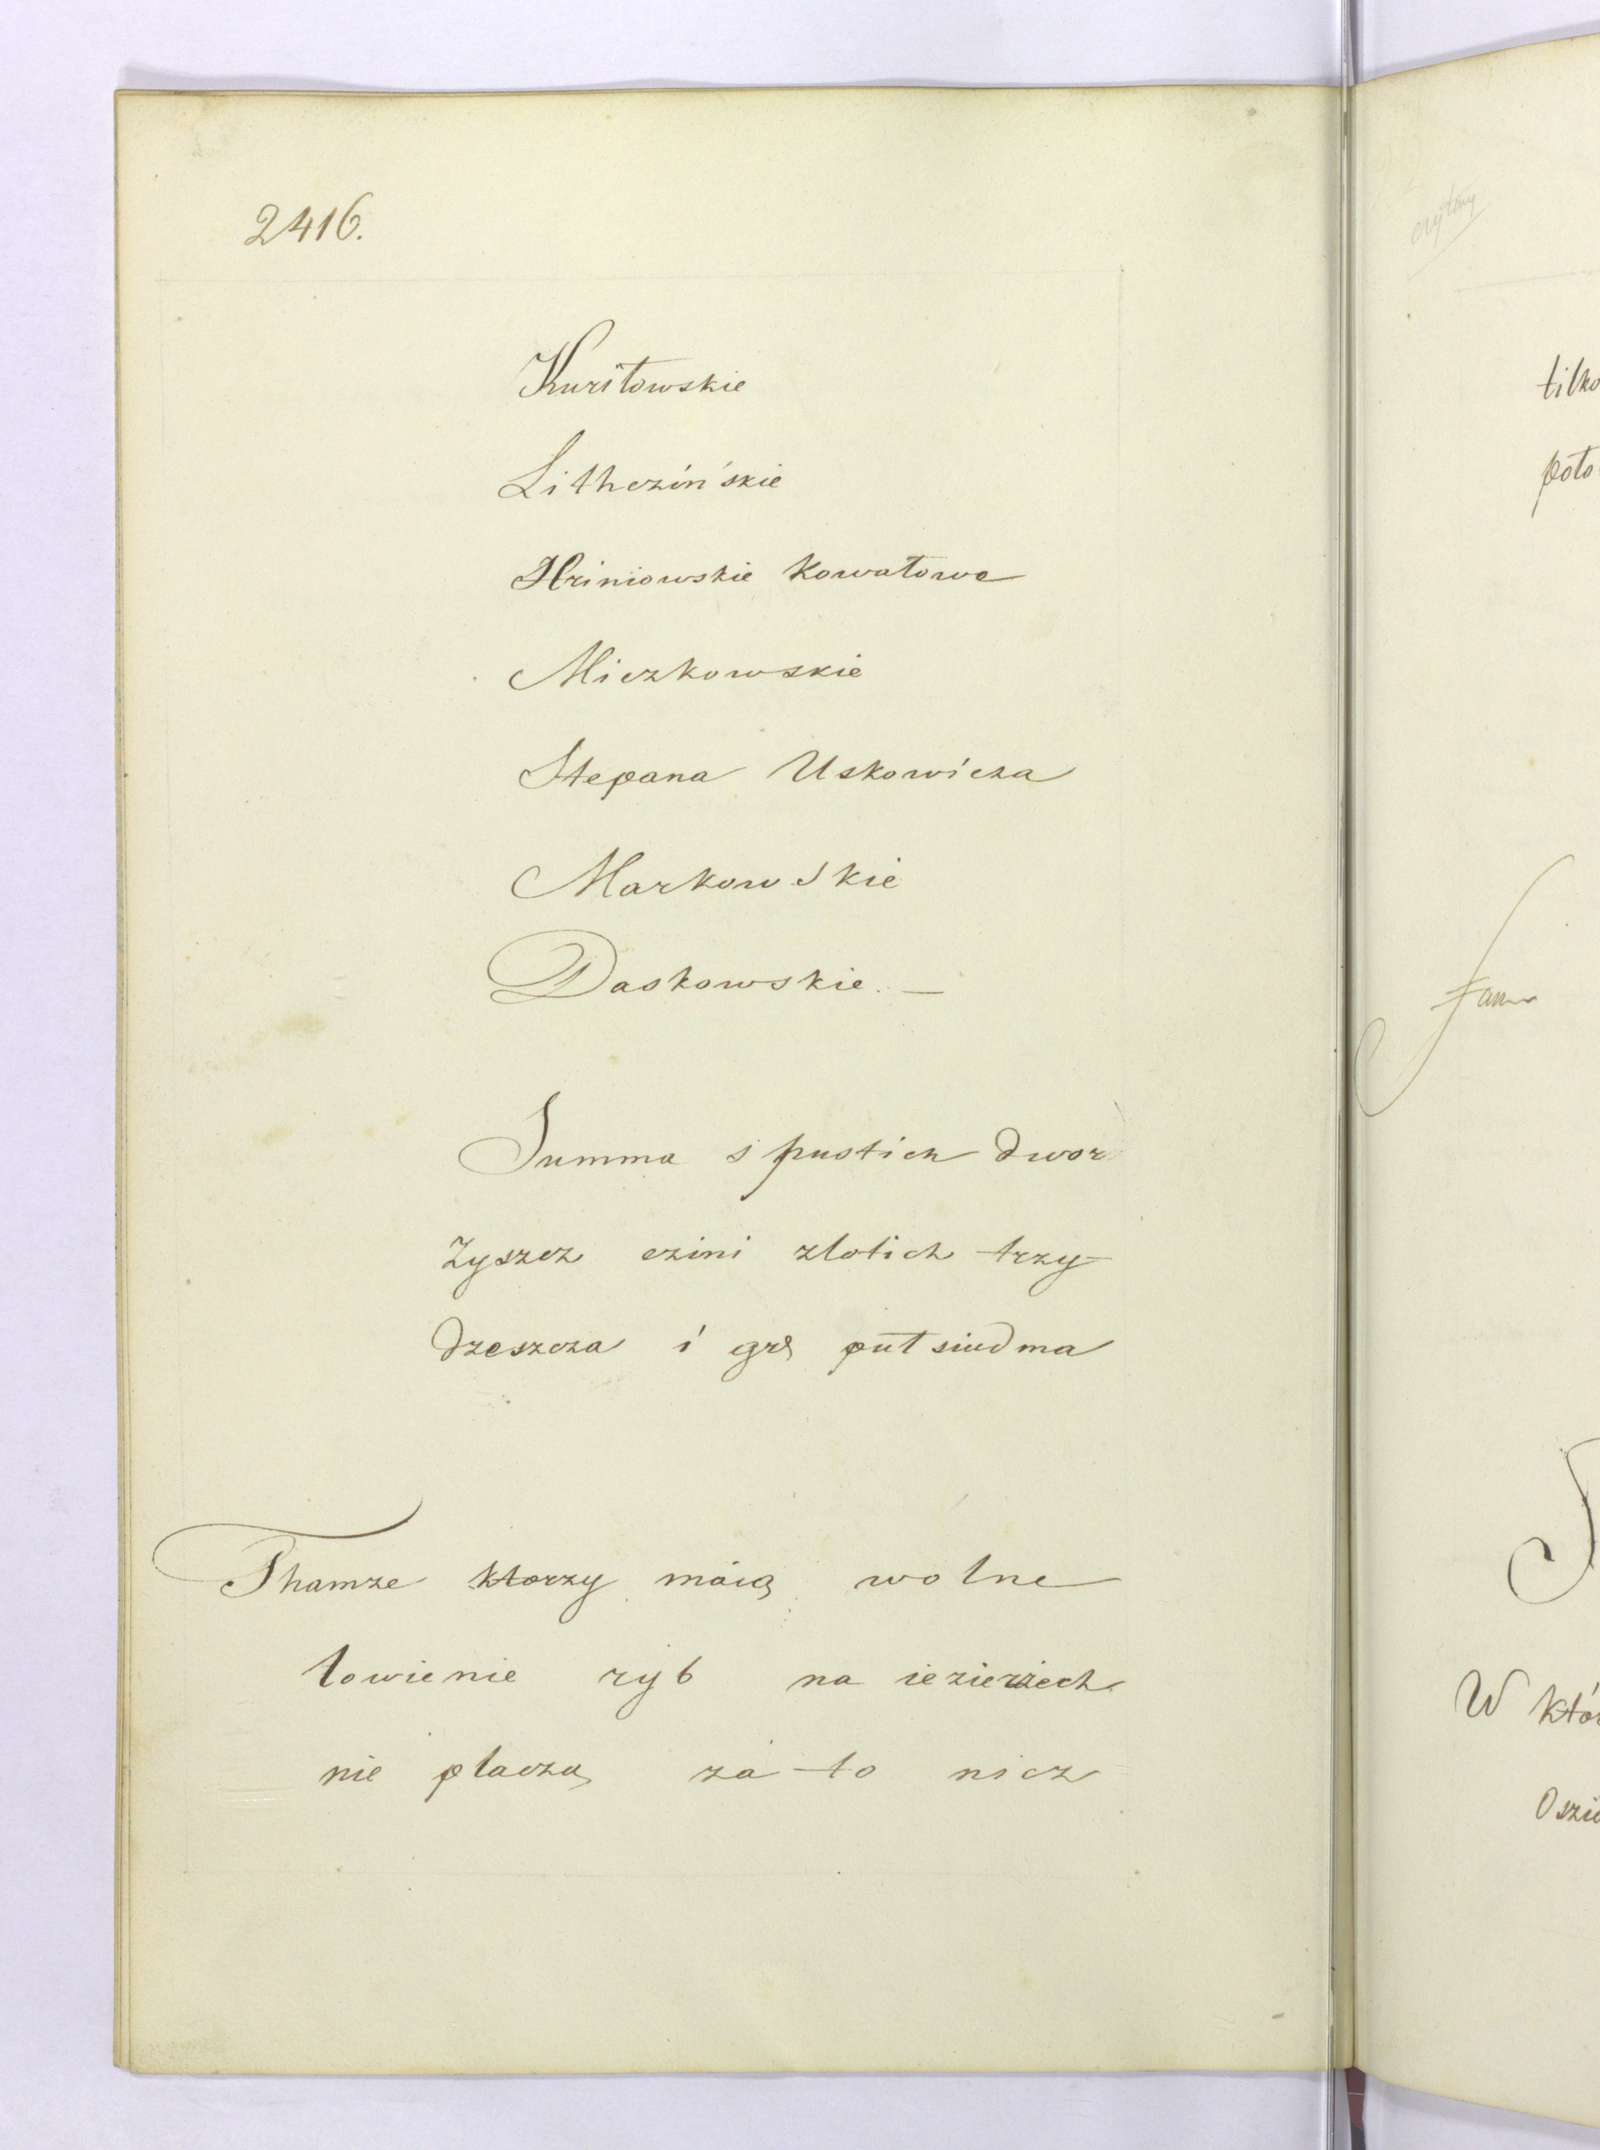 2416.
Kuriłowskie
Lithczińskie
Hriniowskie Kowałowe
Miczkowskie
Stepana Uskowicza
Markowskie
Daskowskie. —
Summa s pustich dwor
zyszcz czini zlotich trzy
dzeszcza i grs pułsiudma
Thamze ktorzy máią wolne
łowienie ryb na iezierzech
nie placzą zá to nicz
tilko
poło
W któr
Oszie